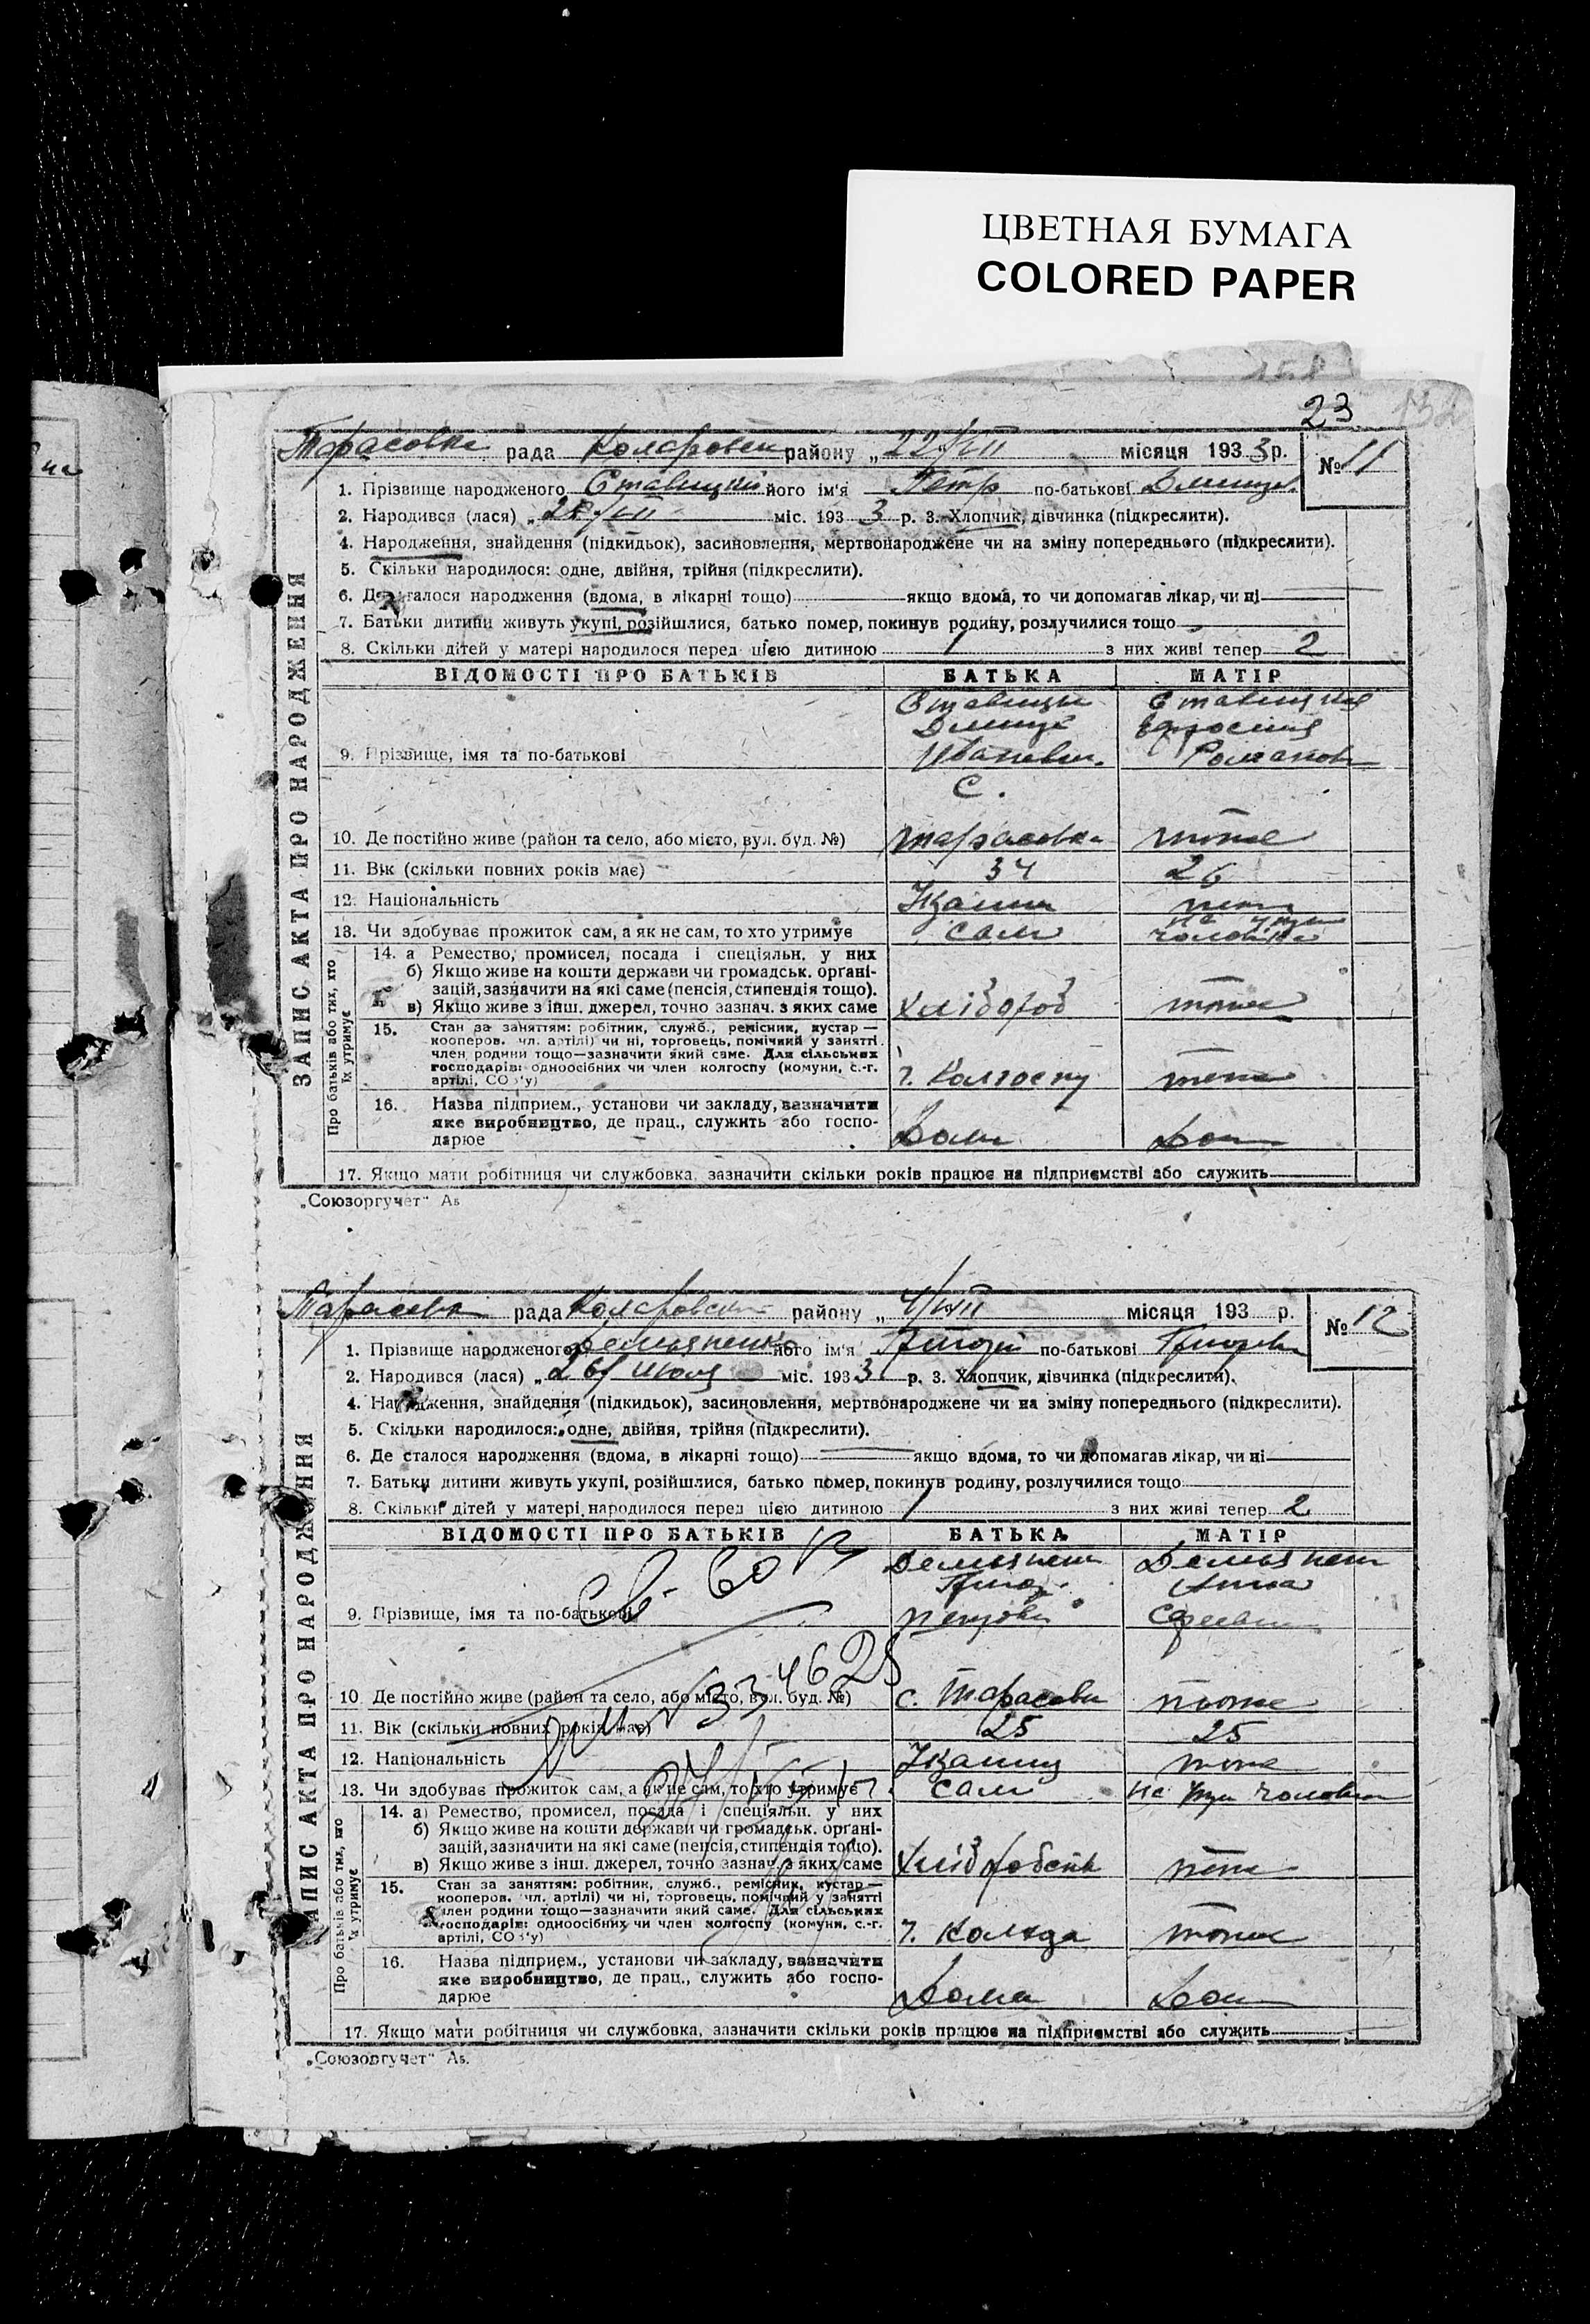 ЦВЕТНАЯ БУМАГА
COLORED PAPER
23
Тарасовка рада Коларовськ району „22/VII місяця 1933 р. № 11
1. Прізвище народженого Ставицкий його ім'я Петр по-батькові Дмитр.
2. Народився (лася) „ /VII міс. 193 3 р. 3. Хлопчик, дівчинка (підкреслити).
4. Народження, знайдення (підкидьок), засиновлення, мертвонароджене чи на зміну попереднього (підкреслити).
5. Скільки народилося: одне, двійня, трійня (підкреслити).
6. Де сталося народження (вдома, в лікарні тощо) якщо вдома, то чи допомагав лікар, чи ні
7. Батьки дитини живуть укупі, розійшлися, батько помер, покинув родину, розлучилися тощо
8. Скільки дітей у матері народилося перед цією дитиною 1 з них живі тепер 2
ЗАПИС АКТА ПРО НАРОДЖЕННЯ
ВІДОМОСТІ ПРО БАТЬКІВ БАТЬКА МАТІР
Ставицки Ставицкая
Дмитро
9. Прізвище, імя та по-батькові Иванович. Романов
С.
10. Де постійно живе (район та село, або місто, вул. буд. №) Тарасовка тоже
11. Вік (скільки повних років має) 34 26
12. Національність
13. Чи здобуває прожиток сам, а як не сам, то хто утримує сам на утри чоловіка
Про батьків або тих, хто їх утримує
14. а Ремество, промисел, посада і спеціяльн. у них
б) Якщо живе на кошти держави чи громадськ. орґані-
зацій, зазначити на які саме (пенсія, стипендія тощо).
в) Якщо живе з інш. джерел, точно зазнач. з яких саме Хлібороб тоже
15. Стан за заняттям: робітник, служб., ремісник, кустар —
кооперов. чл. артілі) чи ні, торговець, помічний у занятті
член родини тощо—зазначити який саме. Для сільських
господарів: одноосібних чи член колгоспу (комуни, с.-г.
артілі, СОЗ'у) ч. Колгоспу тоже
16. Назва підприєм., установи чи закладу, зазначити
яке виробництво, де прац., служить або госпо-
дарює Дома Дом
17. Якщо мати робітниця чи службовка, зазначити скільки років працює на підприємстві або служить
„Союзоргучет“ Ав
Тарасовка рада Коларовський району „4/VIII місяця 193 р. № 12
1. Прізвище народженого Демьяненко його ім'я Григорій по-батькові Григорьев
2. Народився (лася) „26/ июля міс. 193 3 р. 3. Хлопчик, дівчинка (підкреслити).
4. Народження, знайдення (підкидьок), засиновлення, мертвонароджене чи на зміну попереднього (підкреслити).
5. Скільки народилося: одне, двійня, трійня (підкреслити).
6. Де сталося народження (вдома, в лікарні тощо) якщо вдома, то чи допомагав лікар, чи ні
7. Батьки дитини живуть укупі, розійшлися, батько помер, покинув родину, розлучилися тощо
8. Скільки дітей у матері народилося перед цією дитиною 1 з них живі тепер 2
ЗАПИС АКТА ПРО НАРОДЖЕННЯ
ВІДОМОСТІ ПРО БАТЬКІВ БАТЬКА МАТІР
Демьянен Демьянен
Григор. Анна
9. Прізвище, імя та по-батькові Петрович Сергеевн
334625
10. Де постійно живе (район та село, або місто, вул. буд. №) с. Тарасовк тоже
11. Вік (скільки повних років має) 25 25
12. Національність тоже
13. Чи здобуває прожиток сам, а як не сам, то хто утримує сам на утри чоловіка
Про батьків або тих, хто їх утримує
14. а) Ремество, промисел, посада і спеціяльн. у них
б) Якщо живе на кошти держави чи громадськ. орґані-
зацій, зазначити на які саме (пенсія, стипендія тощо).
в) Якщо живе з інш. джерел, точно зазнач. з яких саме тоже
15. Стан за заняттям: робітник, служб., ремісник, кустар —
кооперов. чл. артілі) чи ні, торговець, помічний у занятті
член родини тощо—зазначити який саме. Для сільських
господарів: одноосібних чи член колгоспу (комуни, с.-г.
артілі, СОЗ'у) ч. тоже
16. Назва підприєм., установи чи закладу, зазначити
яке виробництво, де прац., служить або госпо-
дарює Дома Дом
17. Якщо мати робітниця чи службовка, зазначити скільки років працює на підприємстві або служить
„Союзоргучет“ Ав.